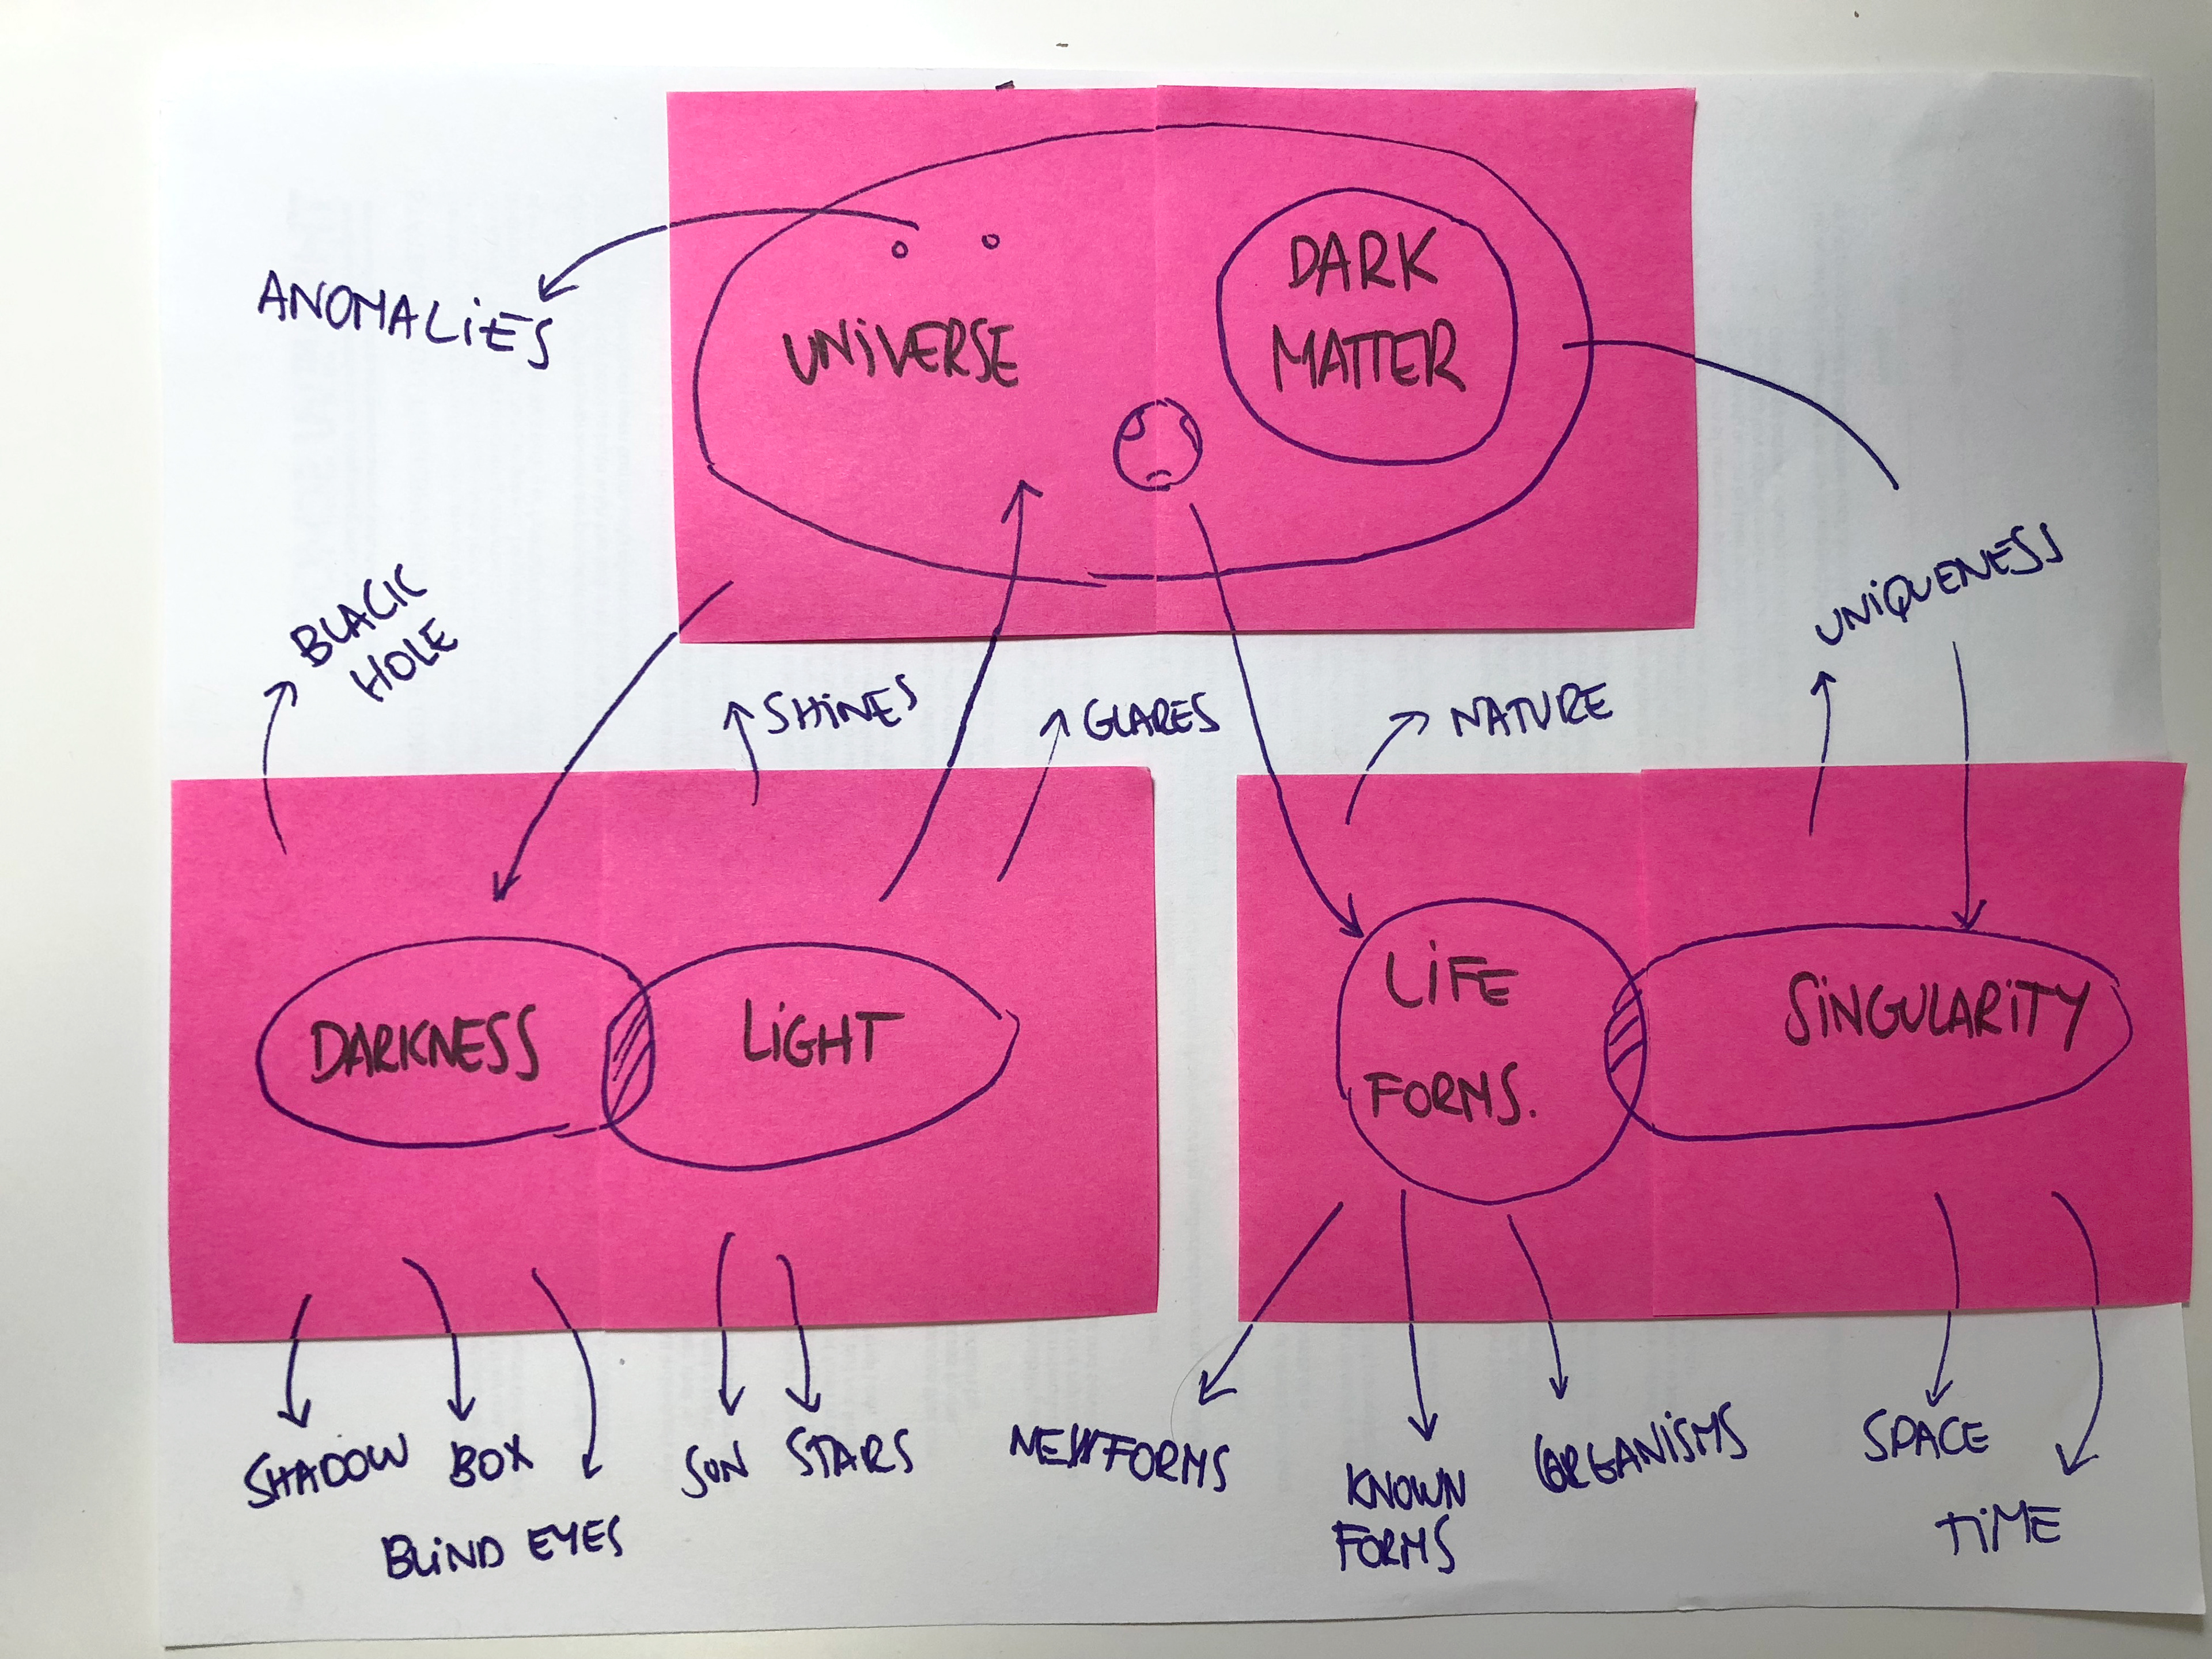 DARK
MATTER
UNIVERSE
ANOMALIES
BLACK
HOLE
SHINES
GLARES
NATURE
UNIQUENESS
DARKNESS
LIGHT
LIFE
FORMS.
SINGULARITY
SHADOW
BOX
BLIND EYES
SUN
STARS
NEW FORMS
KNOWN
FORMS
ORGANISMS
SPACE
TIME